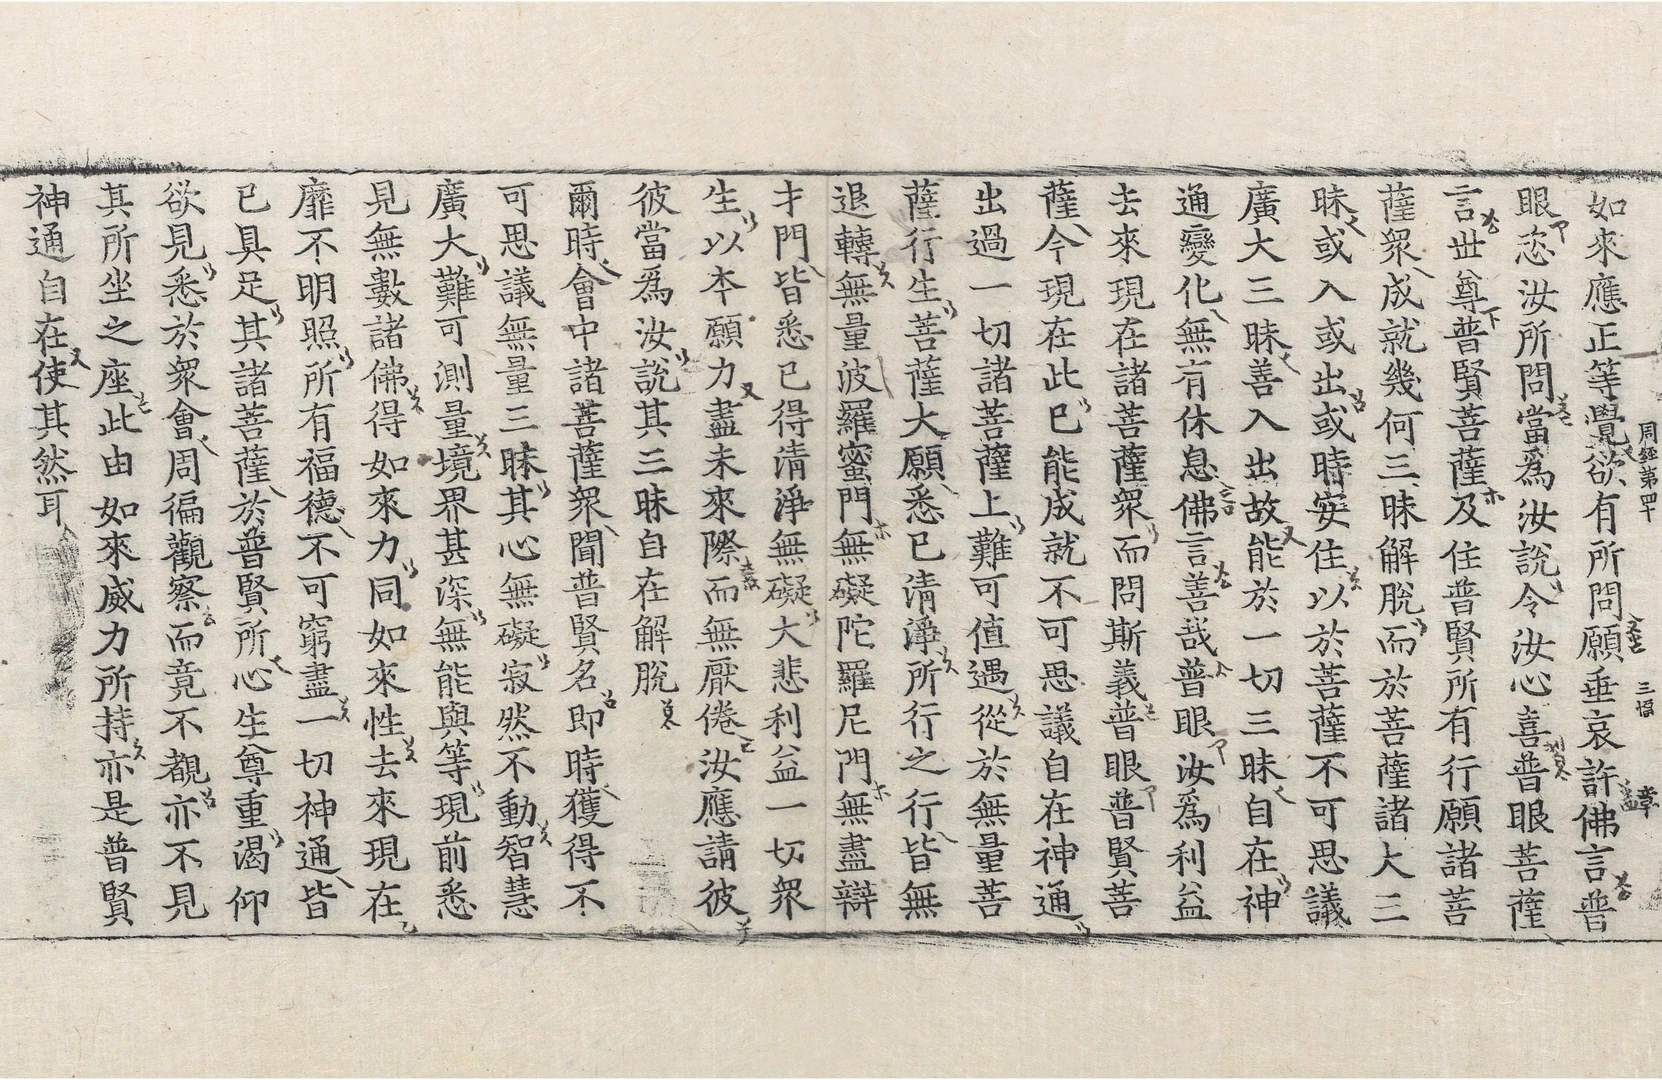 如來應正等覺欲有所問願垂哀許佛言普
眼恣汝所問當爲汝說令汝心喜普眼菩薩
言世尊普賢菩薩及住普賢所有行願諸菩
薩衆成就幾何三昧解脫而於菩薩諸大三
昧或入或出或時安住以於菩薩不可思議
廣大三昧善入出故能於一切三昧自在神
通變化無有休息佛言善哉普眼汝爲利益
去來現在諸菩薩衆而問斯義普眼普賢菩
薩今現在此已能成就不可思議自在神通
出過一切諸菩薩上難可值遇從於無量菩
薩行生菩薩大願悉已清淨所行之行皆無
退轉無量波羅蜜門無礙陀羅尼門無盡辯
才門皆悉已得清淨無礙大悲利益一切衆
生以本願力盡未來際而無厭倦汝應請彼
彼當爲汝說其三昧自在解脫
爾時會中諸菩薩衆聞普賢名即時獲得不
可思議無量三昧其心無礙寂然不動智慧
廣大難可測量境界甚深無能與等現前悉
見無數諸佛得如來力同如來性去來現在
靡不明照所有福德不可窮盡一切神通皆
已具足其諸菩薩於普賢所心生尊重渴仰
欲見悉於衆會周徧觀察而竟不覩亦不見
其所坐之座此由如來威力所持亦是普賢
神通自在使其然耳
周經第四十